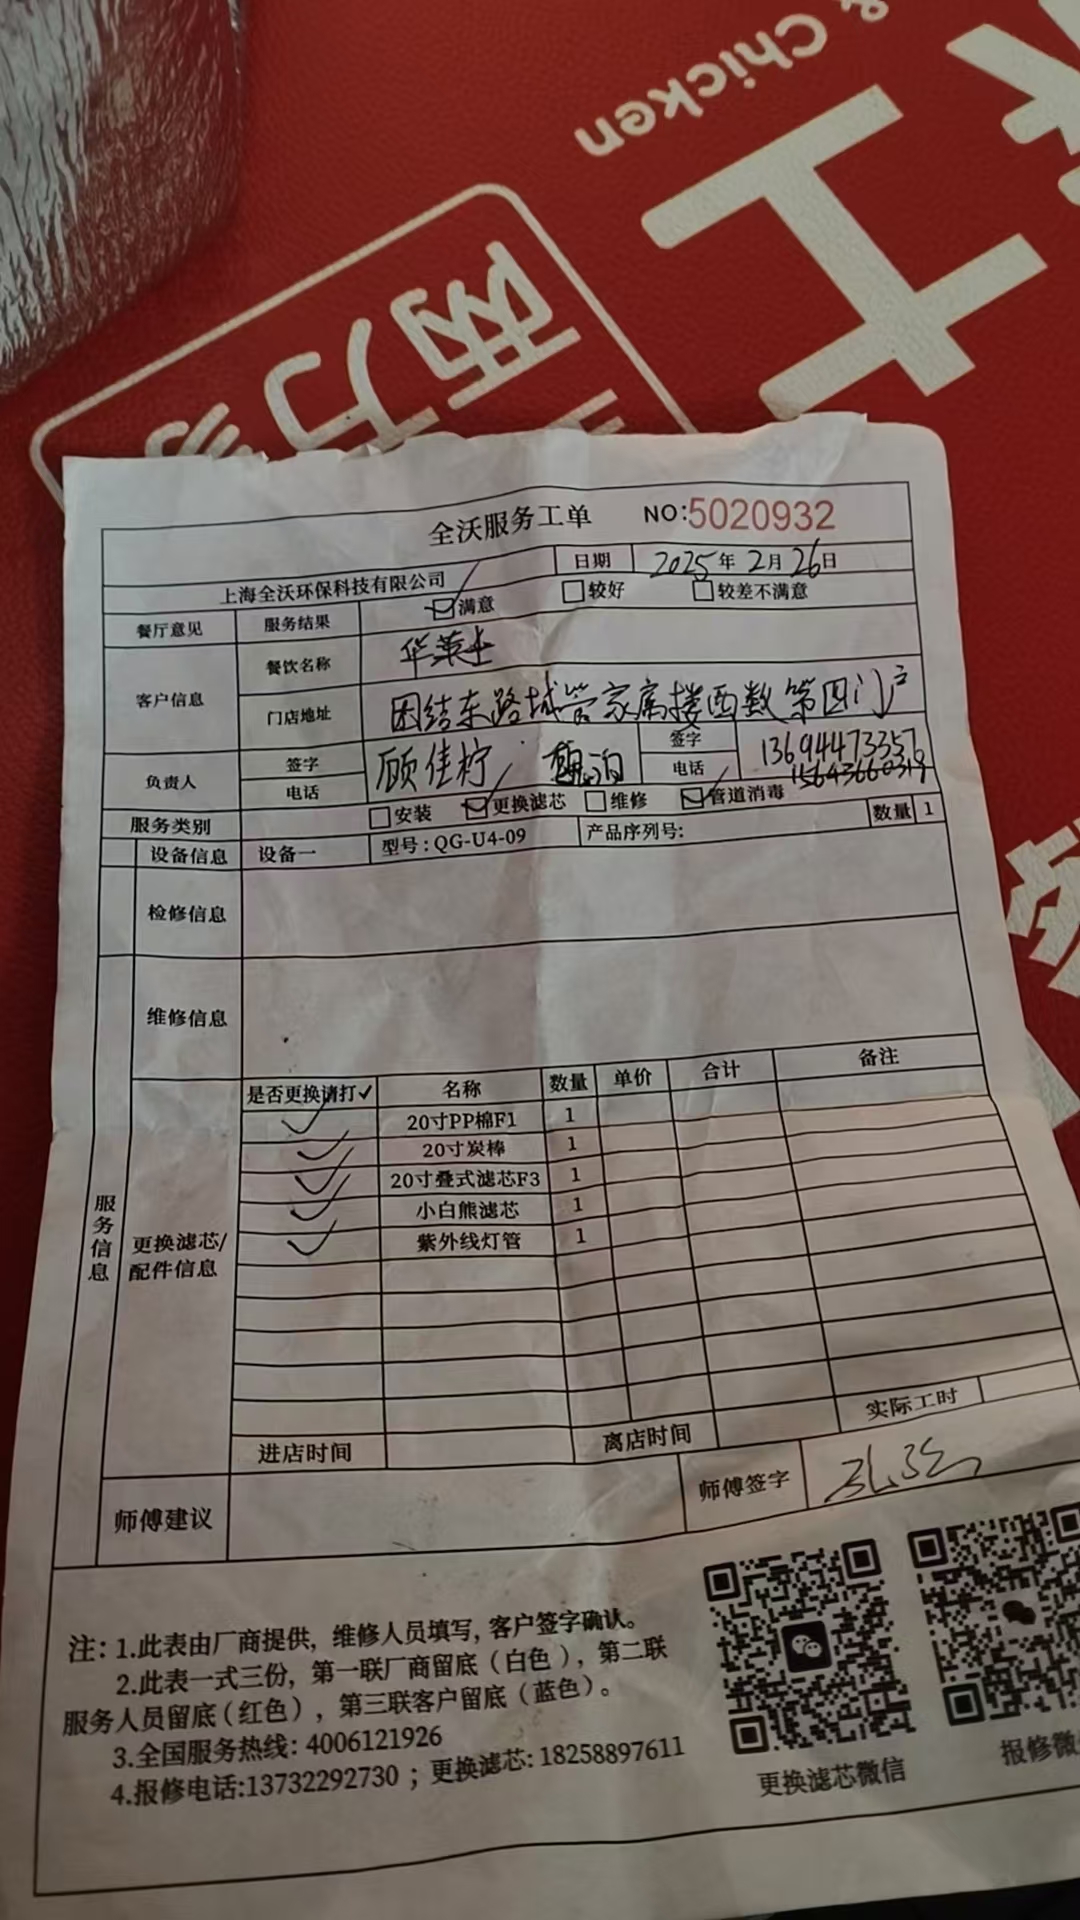 & Chicken
士
两万家
全沃服务工单 NO:5020932
上海全沃环保科技有限公司 日期 2025年2月26日
餐厅意见 服务结果 满意 较好 较差不满意
客户信息 餐饮名称 华莱士
门店地址 团结东路城管家属楼西数第四门户
负责人 签字 顾佳柠 签字
电话 电话 13694473357
服务类别 安装 更换滤芯 维修 管道消毒
设备信息 设备一 型号:QG-U4-09 产品序列号: 数量 1
检修信息
维修信息
服务信息
更换滤芯/配件信息
是否更换请打✓ 名称 数量 单价 合计 备注
✓ 20寸PP棉F1 1
✓ 20寸炭棒 1
✓ 20寸叠式滤芯F3 1
✓ 小白熊滤芯 1
✓ 紫外线灯管 1
进店时间 离店时间 实际工时
师傅建议 师傅签字
注: 1.此表由厂商提供, 维修人员填写, 客户签字确认。
2.此表一式三份, 第一联厂商留底(白色), 第二联
服务人员留底(红色), 第三联客户留底(蓝色)。
3.全国服务热线: 4006121926
4.报修电话:13732292730 ; 更换滤芯: 18258897611
更换滤芯微信 报修微